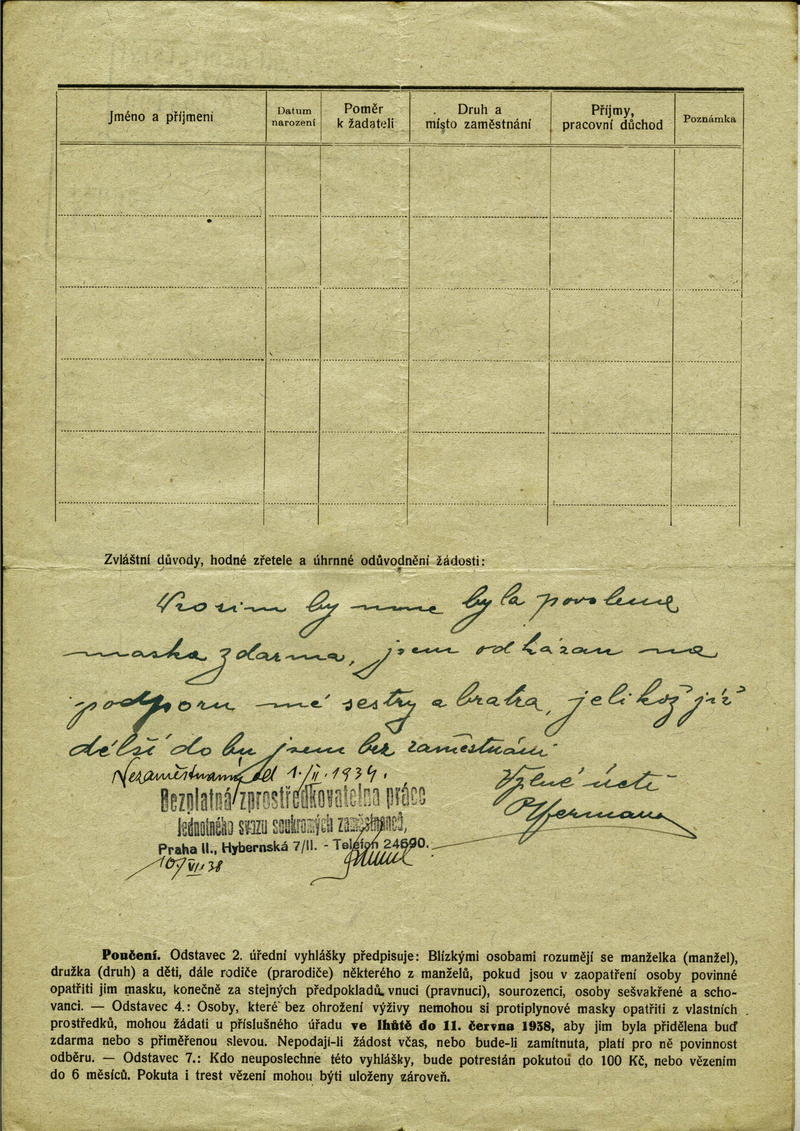 Jméno a příjmení
Datum narození
Poměr k žadateli
Druh a místo zaměstnání
Příjmy, pracovní důchod
Poznámka
Zvláštní důvody, hodné zřetele a úhrnné odůvodnění žádosti:
Prosim by mne byla povolena
maska zdarma, jsem odkázan na
podporu mé sestry a bratra, jelikož již
délší dobu jsem bez zaměstnání
Nezaměstnaný od 1./II. 1934.
V plné úctě
Bezplatná zprostředkovatelna práce
Jednotného svazu soukromých zaměstnanců,
Praha II., Hybernská 7/II. - Telefon 24690.
10/VI. 38
Poučení. Odstavec 2. úřední vyhlášky předpisuje: Blízkými osobami rozumějí se manželka (manžel),
družka (druh) a děti, dále rodiče (prarodiče) některého z manželů, pokud jsou v zaopatření osoby povinné
opatřiti jim masku, konečně za stejných předpokladů vnuci (pravnuci), sourozenci, osoby sešvakřené a scho-
vanci. — Odstavec 4.: Osoby, které bez ohrožení výživy nemohou si protiplynové masky opatřiti z vlastních
prostředků, mohou žádati u příslušného úřadu ve lhůtě do 11. června 1938, aby jim byla přidělena buď
zdarma nebo s přiměřenou slevou. Nepodají-li žádost včas, nebo bude-li zamítnuta, platí pro ně povinnost
odběru. — Odstavec 7.: Kdo neuposlechne této vyhlášky, bude potrestán pokutou do 100 Kč, nebo vězením
do 6 měsíců. Pokuta i trest vězení mohou býti uloženy zároveň.